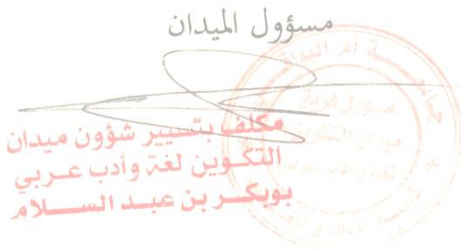 مسؤول الميدان
مكلف بتسيير شؤون ميدان
التكوين لغة وأدب عربي
بوبكر بن عبد السلام